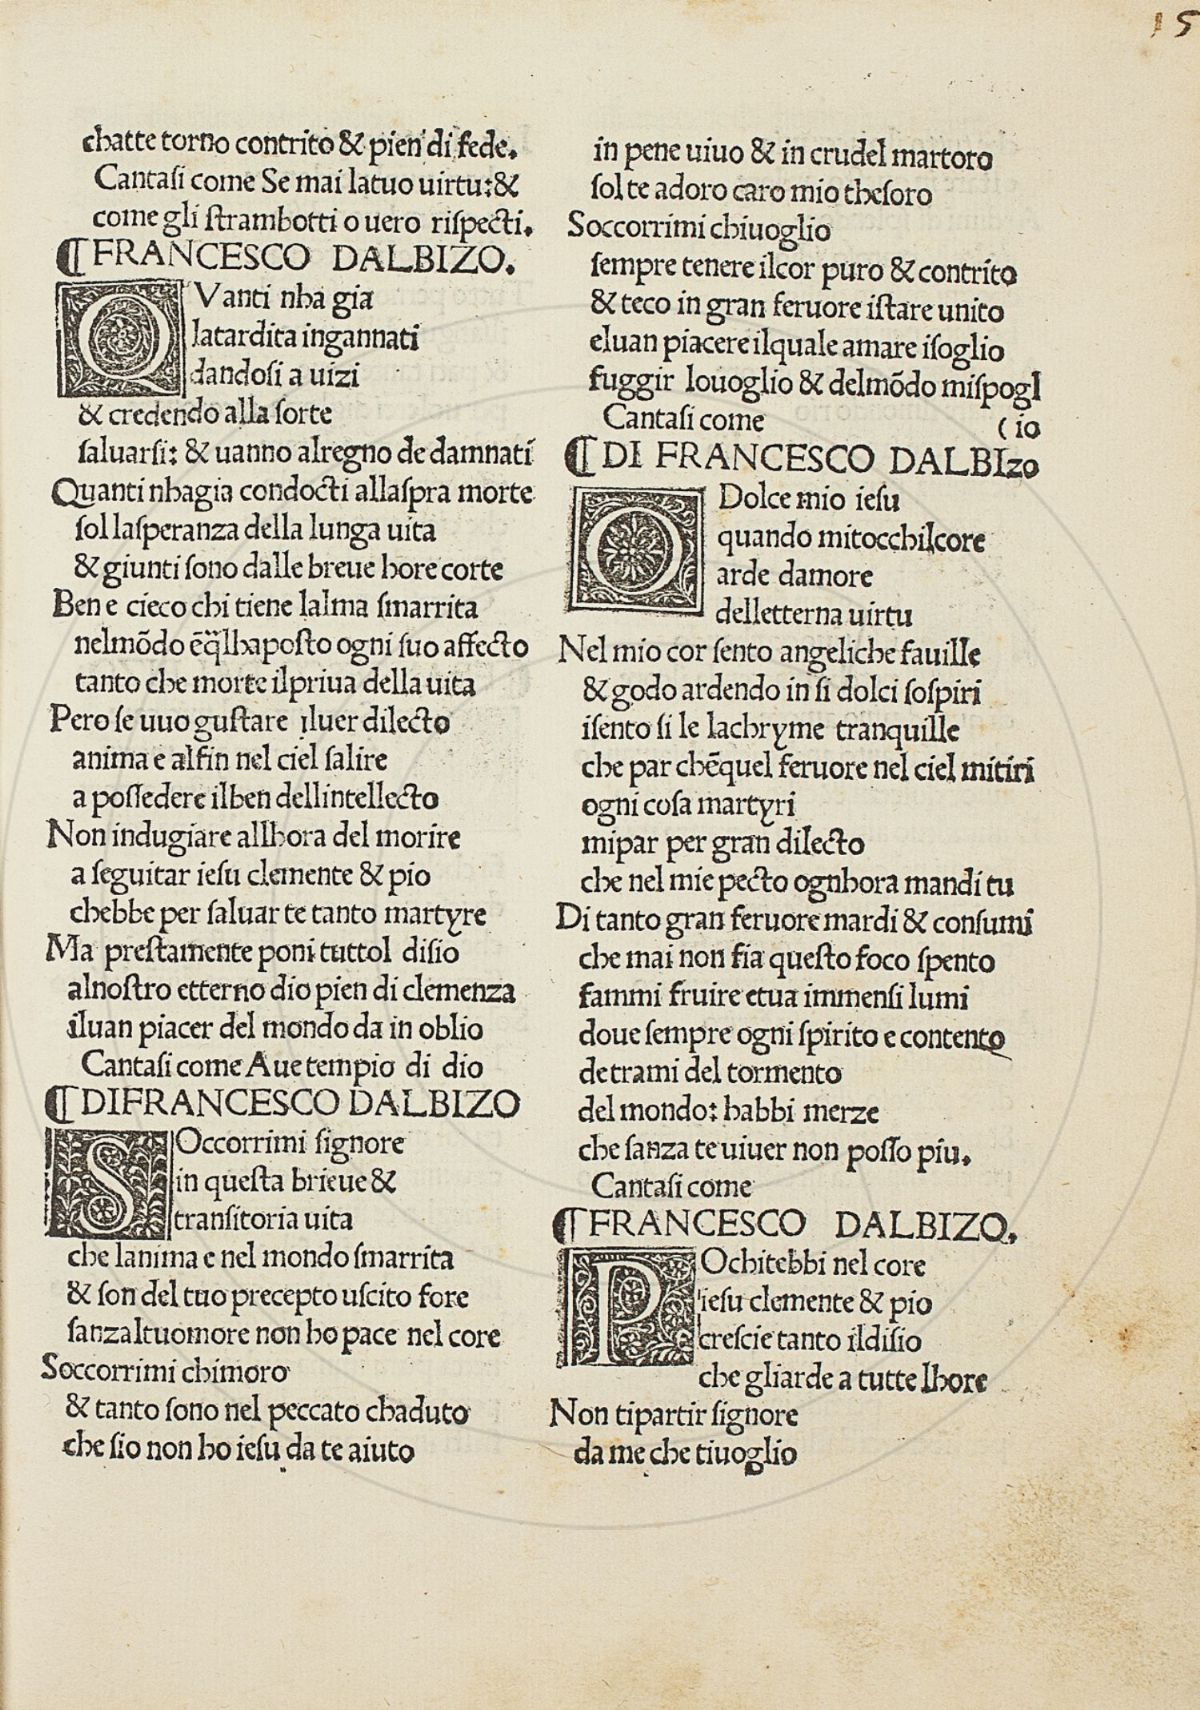 15
chatte torno contrito & pien di fede.
Cantasi come Se mai latuo uirtu:&
come gli strambotti o uero rispecti.
⸿FRANCESCO DALBIZO.
QVanti nha gia
latardita ingannati
dandosi a uizi
& credendo alla sorte
saluarsi: & uanno alregno de damnati
Quanti nhagia condocti allaspra morte
sol lasperanza della lunga uita
& giunti sono dalle breue hore corte
Ben e cieco chi tiene lalma smarrita
nelmõdo ẽq̃llhaposto ogni suo affecto
tanto che morte ilpriua della uita
Pero se uuo gustare iluer dilecto
anima e alfin nel ciel salire
a possedere ilben dellintellecto
Non indugiare allhora del morire
a seguitar iesu clemente & pio
chebbe per saluar te tanto martyre
Ma prestamente poni tuttol disio
alnostro etterno dio pien di clemenza
iluan piacer del mondo da in oblio
Cantasi come Aue tempio di dio
⸿DIFRANCESCO DALBIZO
SOccorrimi signore
in questa brieue &
transitoria uita
che lanima e nel mondo smarrita
& son del tuo precepto uscito fore
sanzaltuomore non ho pace nel core
Soccorrimi chimoro
& tanto sono nel peccato chaduto
che sio non ho iesu da te aiuto
in pene uiuo & in crudel martoro
sol te adoro caro mio thesoro
Soccorrimi chiuoglio
sempre tenere ilcor puro & contrito
& teco in gran feruore istare unito
eluan piacere ilquale amare isoglio
fuggir louoglio & delmõdo mispogl
Cantasi come (io
⸿DI FRANCESCO DALBIzo
O Dolce mio iesu
quando mitocchilcore
arde damore
delletterna uirtu
Nel mio cor sento angeliche fauille
& godo ardendo in si dolci sospiri
isento si le lachryme tranquille
che par chẽquel feruore nel ciel mitiri
ogni cosa martyri
mipar per gran dilecto
che nel mie pecto ognhora mandi tu
Di tanto gran feruore mardi & consumi
che mai non fia questo foco spento
fammi fruire etua immensi lumi
doue sempre ogni spirito e contento
detrami del tormento
del mondo: habbi merze
che sanza te uiuer non posso piu.
Cantasi come
⸿FRANCESCO DALBIZO.
POchitebbi nel core
iesu clemente & pio
crescie tanto ildisio
che gliarde a tutte lhore
Non tipartir signore
da me che tiuoglio